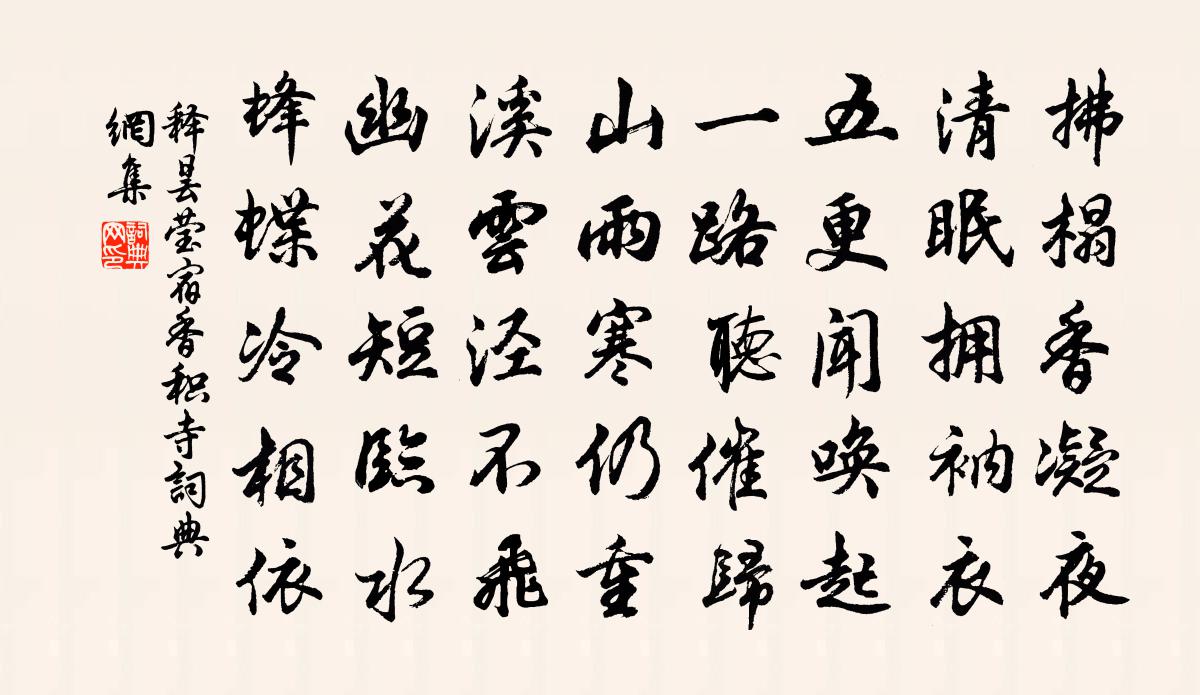 拂榻香凝夜
清眠拥衲衣
五更闻唤起
一路聽催歸
山雨寒仍重
溪雲泾不飛
幽花短臨水
蜂蝶冷相依
释昙莹宿香积寺詞典
網集
詞典
网印